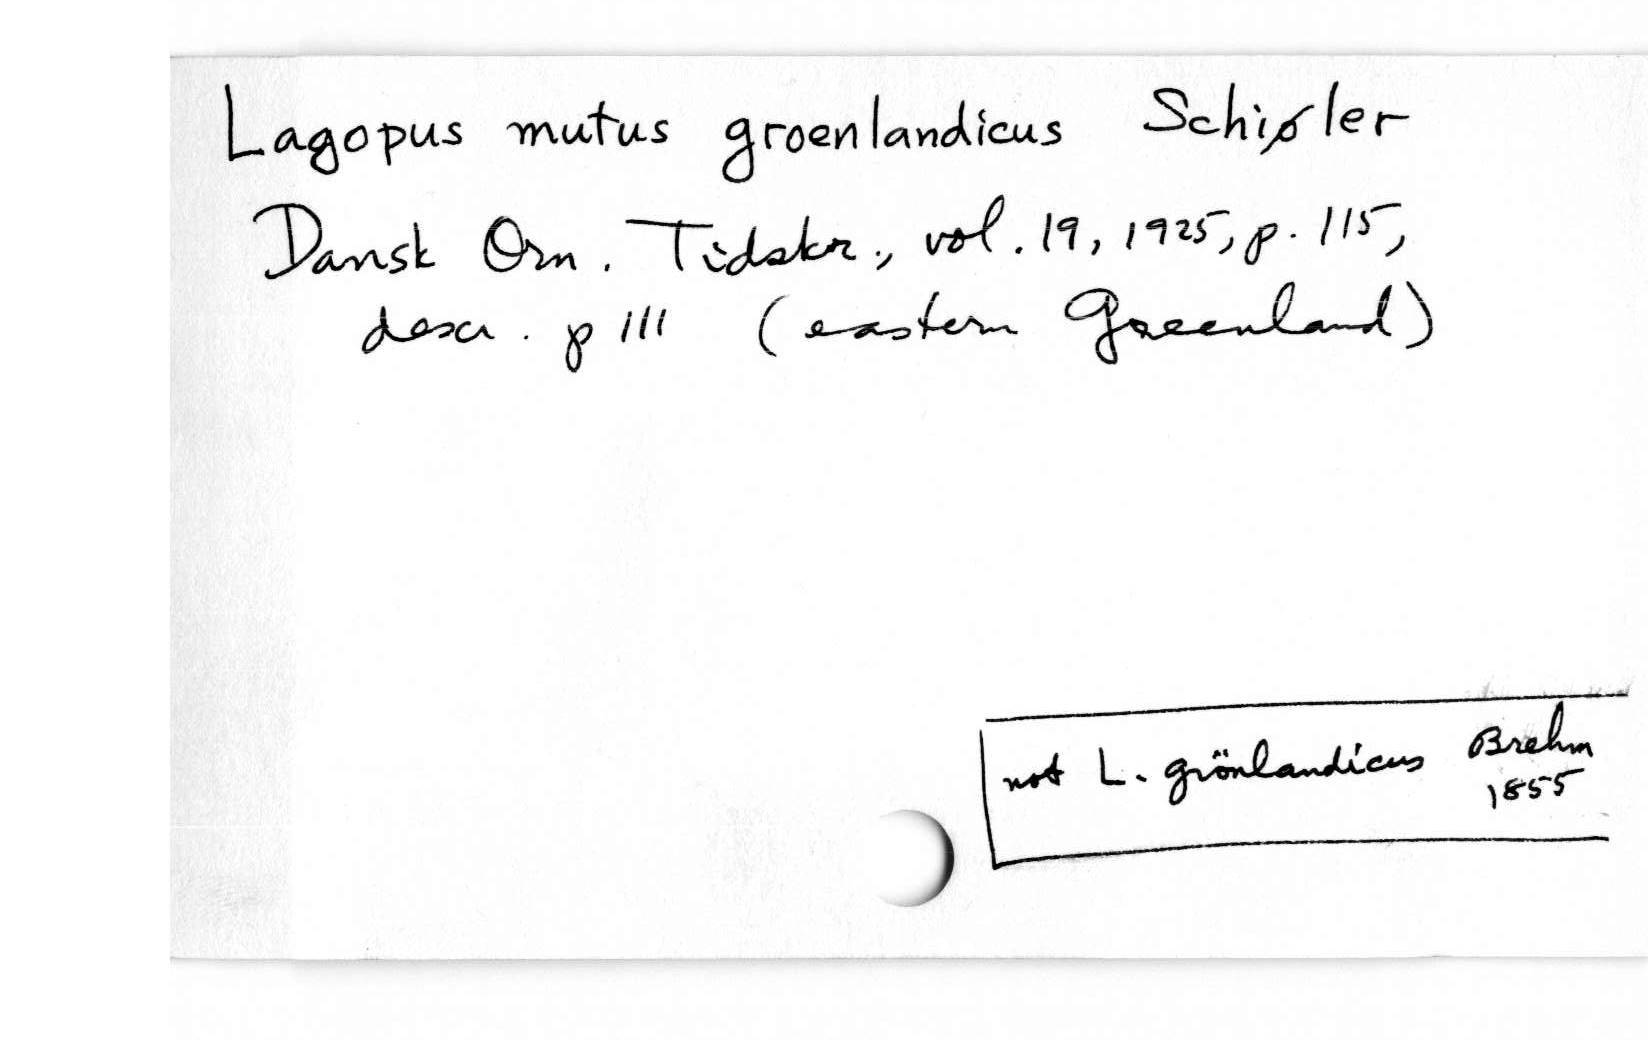 Lagopus mutus groenlandicus Schiøler
Dansk Orn. Tidskr., vol. 19, 1925, p. 115,
descr. p 111 (eastern Greenland)
not L. grönlandicus Brehm
1855